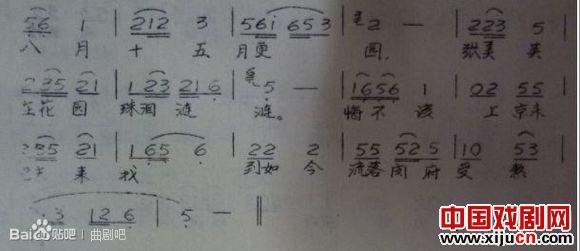 56 1 | 212 3 | 56i 653 | 2 — | 223 5
八 月 十 五 月更 圆, 张美 英
235 21 | 123 216 | 5 — | 1656 1 | 02 55
花园 珠泪涟 涟。 悔不 该 上 京来
35 21 | 165 6 | 22 2 | 55 525 | 10 53
来 找 到如 今 流落 府 受
3 126 | 5 — ‖
Bai度贴吧 | 曲剧吧
中国戏剧网
www.xijucn.com